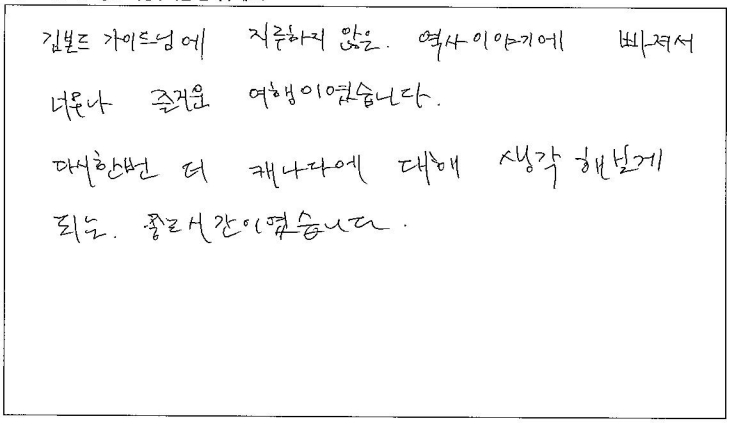 김본드 가이드님에 지루하지 않은. 역사이야기에 빠져서
너무나 즐거운 여행이였습니다.
다시한번 더 캐나다에 대해 생각 해볼게
되는. 시간이였습니다.